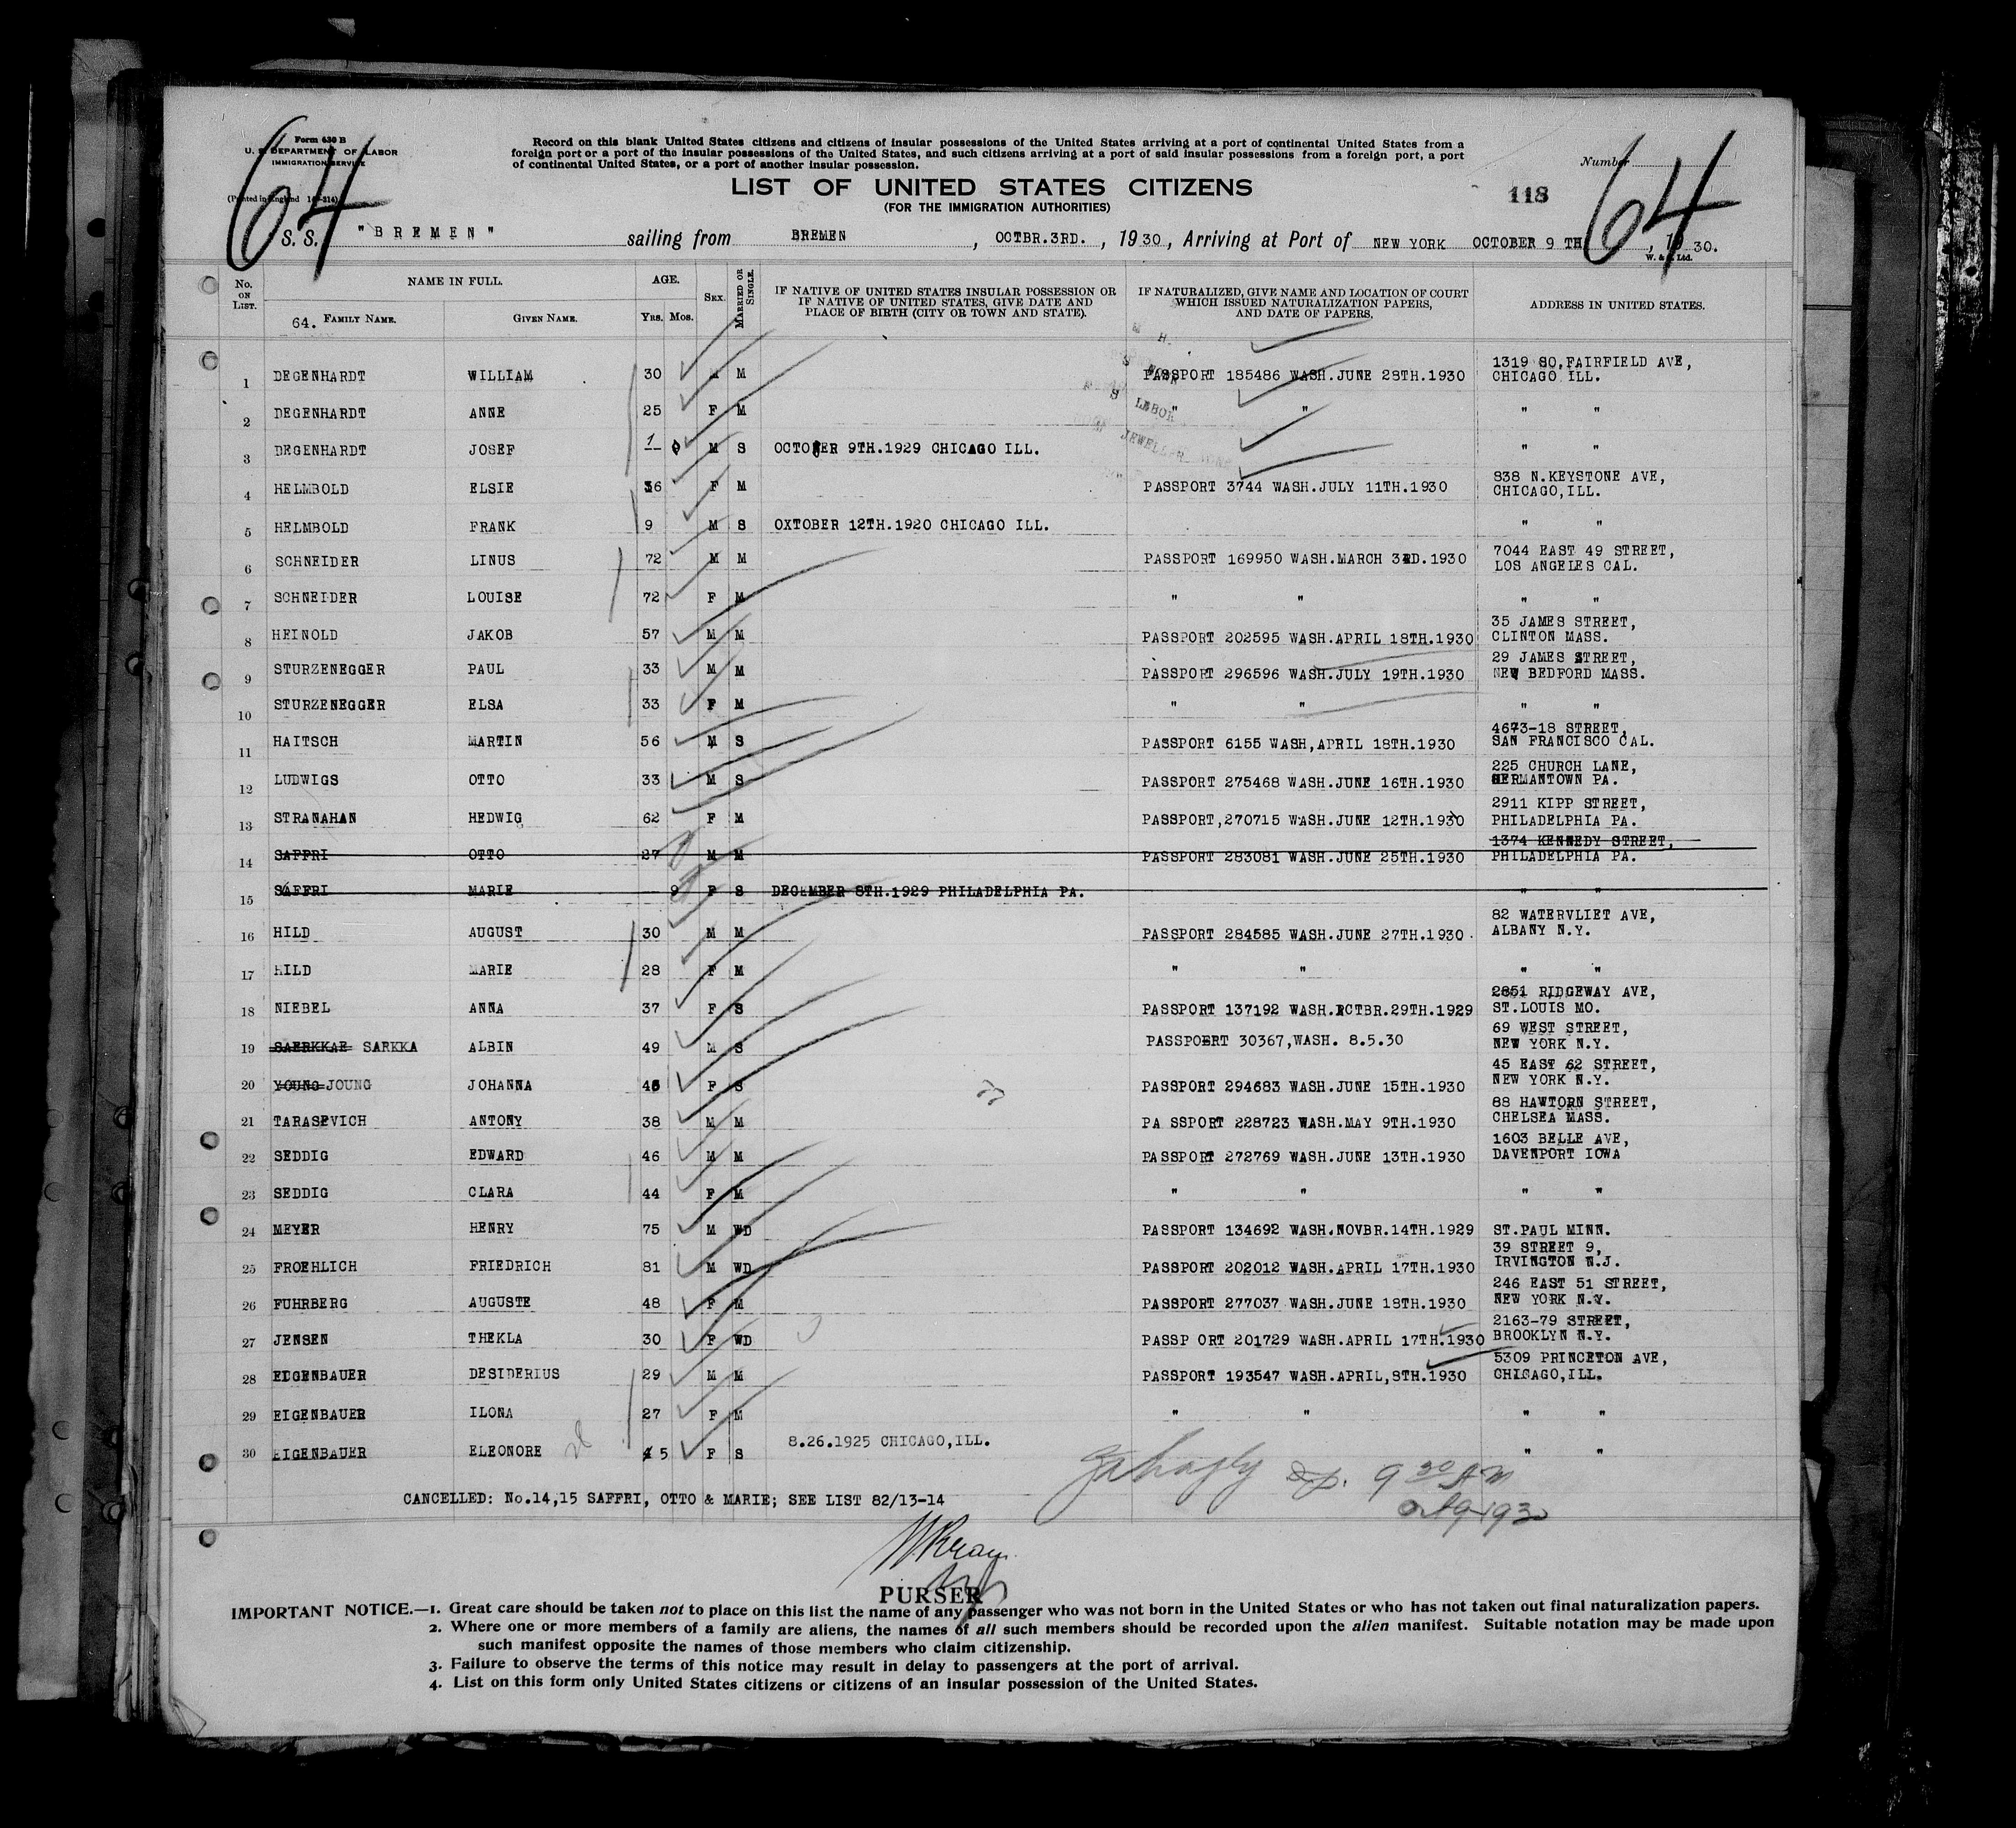 Form 630 B
U. S. DEPARTMENT OF LABOR
IMMIGRATION SERVICE
(Printed in England
64
Record on this blank United States citizens and citizens of insular possessions of the United States arriving at a port of continental United States from a
foreign port or a port of the insular possessions of the United States, and such citizens arriving at a port of said insular possessions from a foreign port, a port
of continental United States, or a port of another insular possession.
Number
64
LIST OF UNITED STATES CITIZENS
(FOR THE IMMIGRATION AUTHORITIES)
118
S. S. "BREMEN" sailing from BREMEN, OCTBR.3RD., 1930, Arriving at Port of NEW YORK OCTOBER 9 TH, 1930.
W. & S. Ltd.
No. ON LIST. NAME IN FULL. AGE. SEX. MARRIED OR SINGLE. IF NATIVE OF UNITED STATES INSULAR POSSESSION OR IF NATIVE OF UNITED STATES, GIVE DATE AND PLACE OF BIRTH (CITY OR TOWN AND STATE). IF NATURALIZED, GIVE NAME AND LOCATION OF COURT WHICH ISSUED NATURALIZATION PAPERS, AND DATE OF PAPERS. ADDRESS IN UNITED STATES.
64. FAMILY NAME. GIVEN NAME. YRS. MOS.
1 DEGENHARDT WILLIAM 30 M M PASSPORT 185486 WASH.JUNE 28TH.1930 1319 SO,FAIRFIELD AVE, CHICAGO ILL.
2 DEGENHARDT ANNE 25 F M " " " "
3 DEGENHARDT JOSEF 1 M S OCTOBER 9TH.1929 CHICAGO ILL. " "
4 HELMBOLD ELSIE 36 F M PASSPORT 3744 WASH.JULY 11TH.1930 838 N.KEYSTONE AVE, CHICAGO,ILL.
5 HELMBOLD FRANK 9 M S OXTOBER 12TH.1920 CHICAGO ILL. " "
6 SCHNEIDER LINUS 72 M M PASSPORT 169950 WASH.MARCH 3RD.1930 7044 EAST 49 STREET, LOS ANGELES CAL.
7 SCHNEIDER LOUISE 72 F M " " " "
8 HEINOLD JAKOB 57 M M PASSPORT 202595 WASH.APRIL 18TH.1930 35 JAMES STREET, CLINTON MASS.
9 STURZENEGGER PAUL 33 M M PASSPORT 296596 WASH.JULY 19TH.1930 29 JAMES STREET, NEW BEDFORD MASS.
10 STURZENEGGER ELSA 33 F M " " " "
11 HAITSCH MARTIN 56 M S PASSPORT 6155 WASH,APRIL 18TH.1930 4673-18 STREET, SAN FRANCISCO CAL.
12 LUDWIGS OTTO 33 M S PASSPORT 275468 WASH.JUNE 16TH.1930 225 CHURCH LANE, GERMANTOWN PA.
13 STRANAHAN HEDWIG 62 F M PASSPORT,270715 WASH.JUNE 12TH.1930 2911 KIPP STREET, PHILADELPHIA PA.
14 SAFFRI OTTO 27 M M PASSPORT 283081 WASH.JUNE 25TH.1930 1374 KENNEDY STREET, PHILADELPHIA PA.
15 SAFFRI MARIE 9 F S DECEMBER 8TH.1929 PHILADELPHIA PA. " "
16 HILD AUGUST 30 M M PASSPORT 284585 WASH.JUNE 27TH.1930. 82 WATERVLIET AVE, ALBANY N.Y.
17 HILD MARIE 28 F M " " " "
18 NIEBEL ANNA 37 F S PASSPORT 137192 WASH.OCTBR.29TH.1929 2851 RIDGEWAY AVE, ST.LOUIS MO.
19 SAERKKAE SARKKA ALBIN 49 M S PASSPOERT 30367,WASH. 8.5.30 69 WEST STREET, NEW YORK N.Y.
20 YOUNG JOUNG JOHANNA 46 F S PASSPORT 294683 WASH.JUNE 15TH.1930 45 EAST 62 STREET, NEW YORK N.Y.
21 TARASEVICH ANTONY 38 M M PA SSPORT 228723 WASH.MAY 9TH.1930 88 HAWTORN STREET, CHELSEA MASS.
22 SEDDIG EDWARD 46 M M PASSPORT 272769 WASH.JUNE 13TH.1930 1603 BELLE AVE, DAVENPORT IOWA
23 SEDDIG CLARA 44 F M " " " "
24 MEYER HENRY 75 M WD PASSPORT 134692 WASH.NOVBR.14TH.1929 ST.PAUL MINN.
25 FROEHLICH FRIEDRICH 81 M WD PASSPORT 202012 WASH.APRIL 17TH.1930 39 STREET 9, IRVINGTON N.J.
26 FUHRBERG AUGUSTE 48 F M PASSPORT 277037 WASH.JUNE 18TH.1930 246 EAST 51 STREET, NEW YORK N.Y.
27 JENSEN THEKLA 30 F WD PASSP ORT 201729 WASH.APRIL 17TH.1930 2163-79 STREET, BROOKLYN N.Y.
28 EIGENBAUER DESIDERIUS 29 M M PASSPORT 193547 WASH.APRIL,8TH.1930 5309 PRINCETON AVE, CHICAGO,ILL.
29 EIGENBAUER ILONA 27 F M " " " "
30 EIGENBAUER ELEONORE 5 F S 8.26.1925 CHICAGO,ILL. " "
9 30 AM
Oct 9-1930
CANCELLED: No.14,15 SAFFRI, OTTO & MARIE; SEE LIST 82/13-14
PURSER
IMPORTANT NOTICE.—1. Great care should be taken not to place on this list the name of any passenger who was not born in the United States or who has not taken out final naturalization papers.
2. Where one or more members of a family are aliens, the names of all such members should be recorded upon the alien manifest. Suitable notation may be made upon
such manifest opposite the names of those members who claim citizenship.
3. Failure to observe the terms of this notice may result in delay to passengers at the port of arrival.
4. List on this form only United States citizens or citizens of an insular possession of the United States.